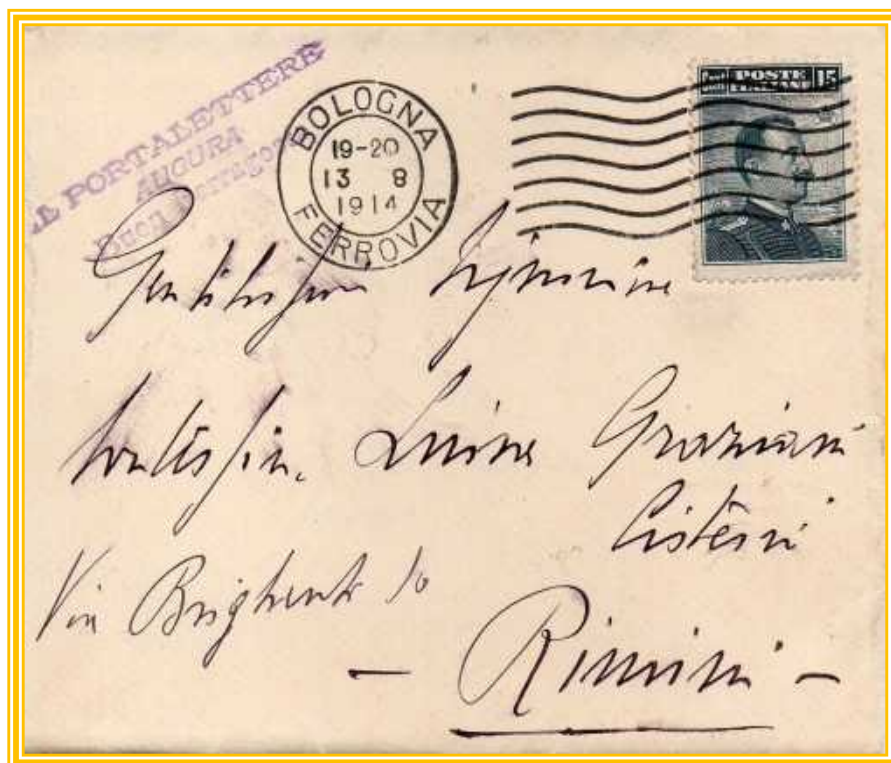 IL PORTALETTERE
AUGURA
Buon Ferragosto
BOLOGNA
19-20
13 8
1914
FERROVIA
POSTE
ITALIANE
15
Gentilissima Signorina
Contessina Luisa Graziani
Cisterni
Via Brighenti 10
- Rimini -